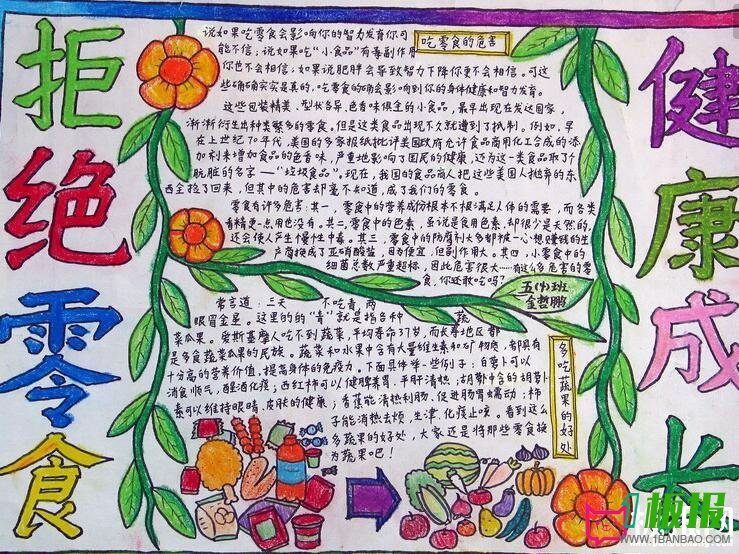 拒绝零食
健康成长
吃零食的危害
说如果吃零食会影响你的智力发育你可
能不信；说如果吃“小食品”有毒副作用
你也不会相信；如果说肥胖会导致智力下降你更不会相信。可这
些确确实实是真的，吃零食的确会影响到你的身体健康和智力发育。
这些包装精美、型状各异、色香味俱全的小食品，最早出现在发达国家，
渐渐衍生出种类繁多的零食。但是这类食品出现不久就遭到了抵制。例如，早
在上世纪70年代，美国的多家报纸批评美国政府允许食品商用化工合成的添
加剂来增加食品的色香味，严重地影响了国民的健康，还为这一类食品取了个
肮脏的名字——“垃圾食品”。现在，我国的食品商人把这些美国人抛弃的东
西全捡了回来，但其中的危害却毫不知道，成了我们的零食。
零食有许多危害：其一，零食中的营养成份根本不根满足人体的需要，而各类
毒精更一点用也没有。其二，零食中的色素，虽说是食用色素，却很少是天然的，
还会使人产生慢性中毒。其三，零食中的防腐剂大多都被一心想赚钱的生
产商换成了亚硝酸盐，因为便宜，但副作用大。其四，小零食中的
细菌总数严重超标，因此危害很大……有这么多危害的零
食，你还敢吃吗？
五(1)班
金哲鹏
常言道：三天不吃青，两
眼冒金星。这里的的“青”就是指各种蔬
菜瓜果。爱斯基摩人吃不到蔬菜，平均寿命37岁，而长寿地区都
是多食蔬菜瓜果的民族。蔬菜和水果中含有大量维生素和矿物质，都具有
十分高的营养价值，提高身体的免疫力。下面具体举一些例子：白萝卜可以
消食顺气，醒酒化痰；西红柿可以健脾养胃，平肝清热；胡萝卜中含的胡萝卜
素可以维持眼睛，皮肤的健康；香蕉能清热利肠，促进肠胃蠕动；柿
子能消热去烦，生津，化痰止咳。看到这么
多蔬果的好处，大家还是将那些零食换
为蔬果吧！
多吃蔬果的好处
1板报
WWW.1BANBAO.COM